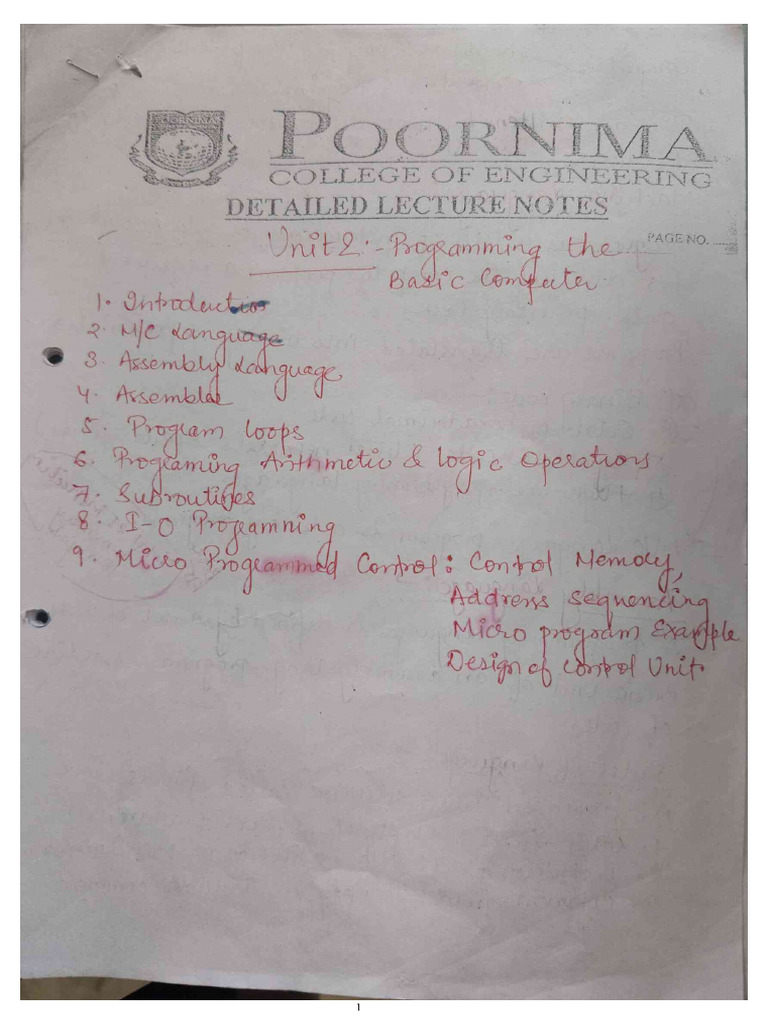 POORNIMA
COLLEGE OF ENGINEERING
DETAILED LECTURE NOTES
PAGE NO. ......
Unit 2:- Programming the
Basic Computer
1. Introduction
2. M/C Language
3. Assembly Language
4. Assembler
5. Program loops
6. Programing Arithmetic & Logic Operations
7. Subroutines
8. I-O Programning
9. Micro Programmed Control: Control Memory,
Address sequencing
Micro program Example
Design of Control Unit
1